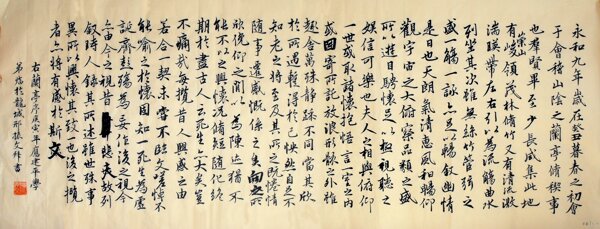 永和九年歲在癸丑暮春之初會
于會稽山陰之蘭亭脩稧事
也群賢畢至少長咸集此地
有崇山峻領茂林脩竹又有清流激
湍暎帶左右引以為流觴曲水
列坐其次雖無絲竹管弦之
盛一觴一詠亦足以暢敘幽情
是日也天朗氣清惠風和暢仰
觀宇宙之大俯察品類之盛
所以遊目騁懷足以極視聽之
娛信可樂也夫人之相與俯仰
一世或取諸懷抱悟言一室之內
或因寄所託放浪形骸之外雖
趣舍萬殊靜躁不同當其欣
於所遇蹔得於己怏然自足不
知老之將至及其所之既惓情
隨事遷感慨係之矣向之所
欣俛仰之閒以為陳迹猶不
能不以之興懷況脩短隨化終
期於盡古人云死生亦大矣豈
不痛哉每攬昔人興感之由
若合一契未嘗不臨文嗟悼不
能喻之於懷固知一死生為虛
誕齊彭殤為妄作後之視今
亦由今之視昔悲夫故列
敘時人錄其所述雖世殊事
異所以興懷其致一也後之攬
者亦將有感於斯文
右蘭亭序庚寅年應建平學
弟於龍城張文祥書